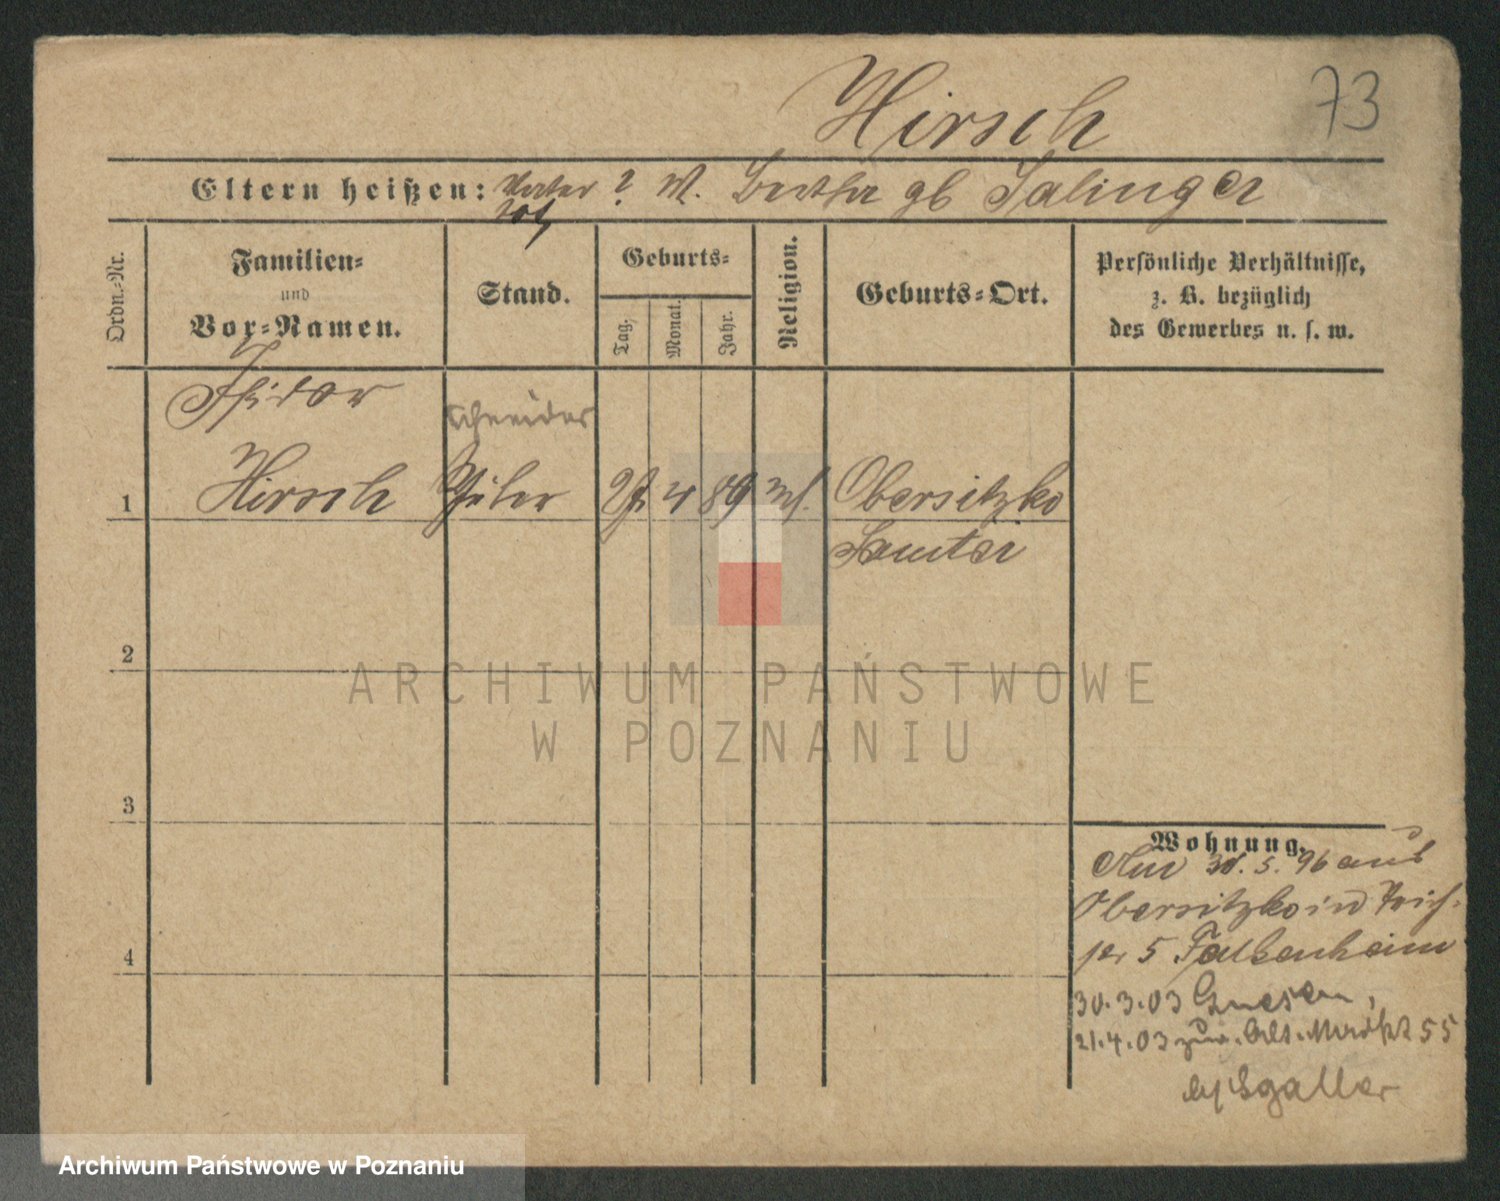 Hirsch 73
Eltern heißen: Vater ? M. Bertha gb Salinger
tot
Ordn.-Nr.
Familien-
und
Vor-Namen.
Stand.
Geburts-
Tag.
Monat.
Jahr.
Religion.
Geburts-Ort.
Persönliche Verhältnisse,
z. B. bezüglich
des Gewerbes u. s. w.
Isidor
Schneider
1 Hirsch 4 89 Obersitzko
Samter
2
3
4
Wohnung.
5. 96 aus
Obersitzko
5 Falkenheim
30.3.03 Gnesen,
21.4.03 zur. Alt. Markt 55
ARCHIWUM PAŃSTWOWE
W POZNANIU
Archiwum Państwowe w Poznaniu